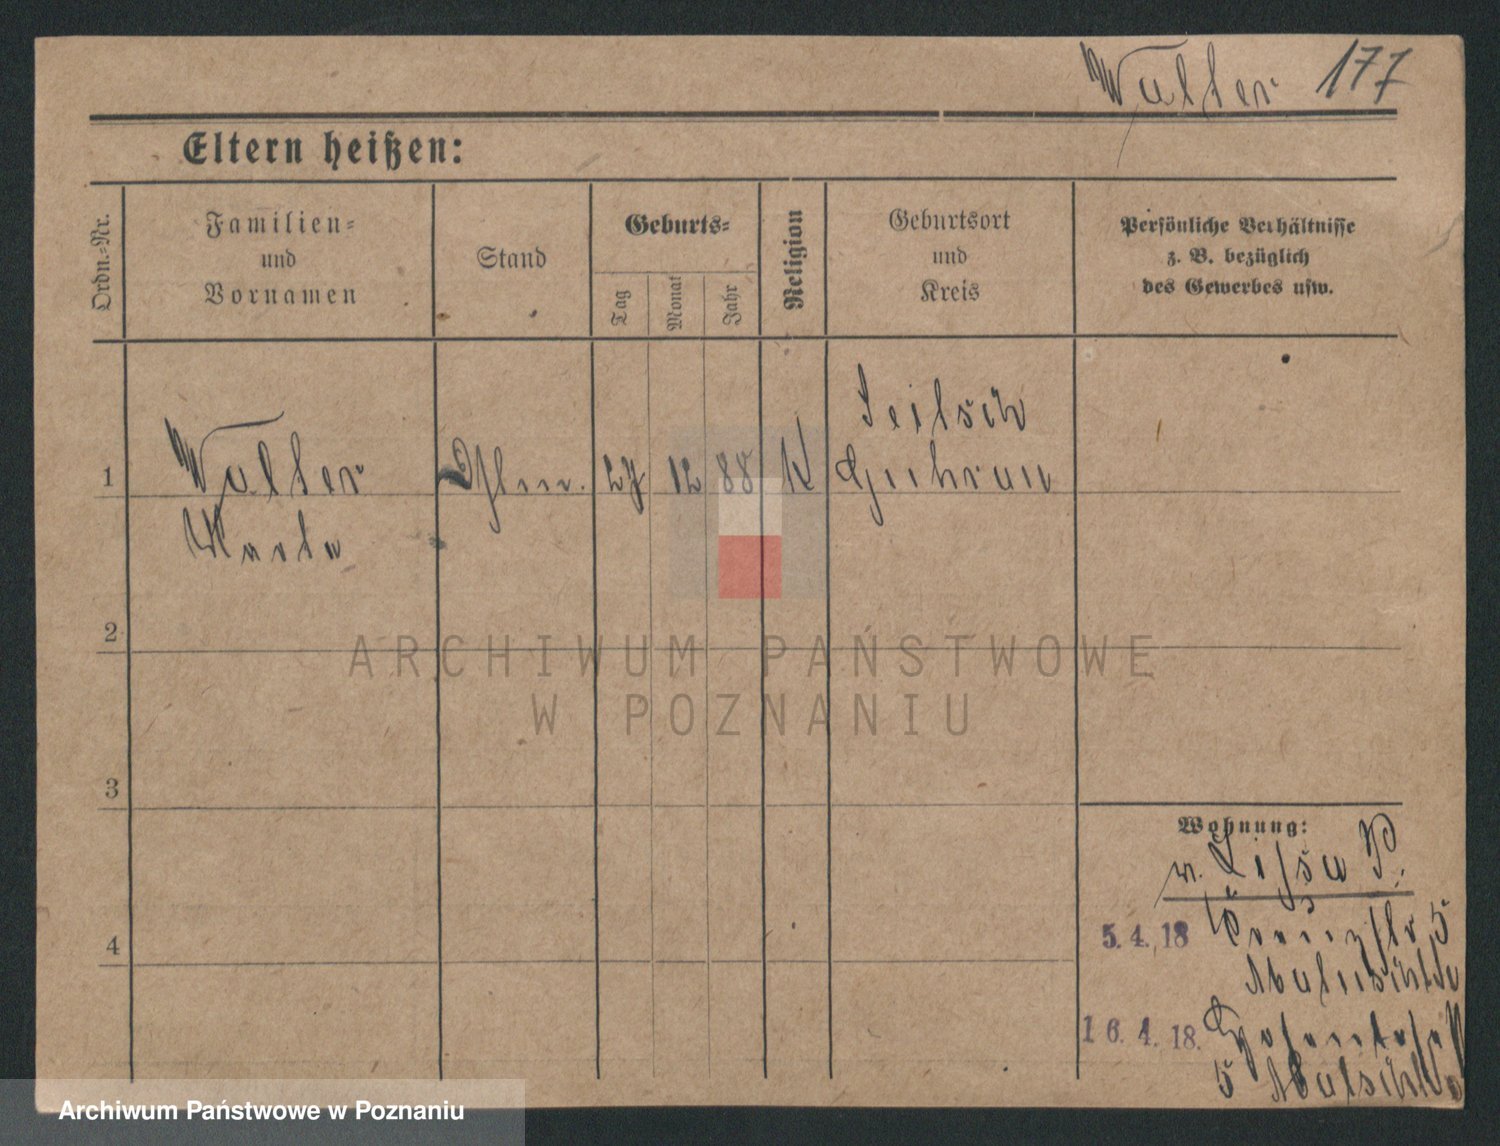 Walter 177
Eltern heißen:
Ordn.-Nr.
Familien-
und
Vornamen
Stand
Geburts-
Tag
Monat
Jahr
Religion
Geburtsort
und
Kreis
Persönliche Verhältnisse
z. B. bezüglich
des Gewerbes usw.
1
Walter
27 12 88 K
Guhrau
2
3
4
ARCHIWUM PAŃSTWOWE
W POZNANIU
Wohnung:
v. Lissa P.
5. 4. 18
16. 4. 18.
5
Archiwum Państwowe w Poznaniu